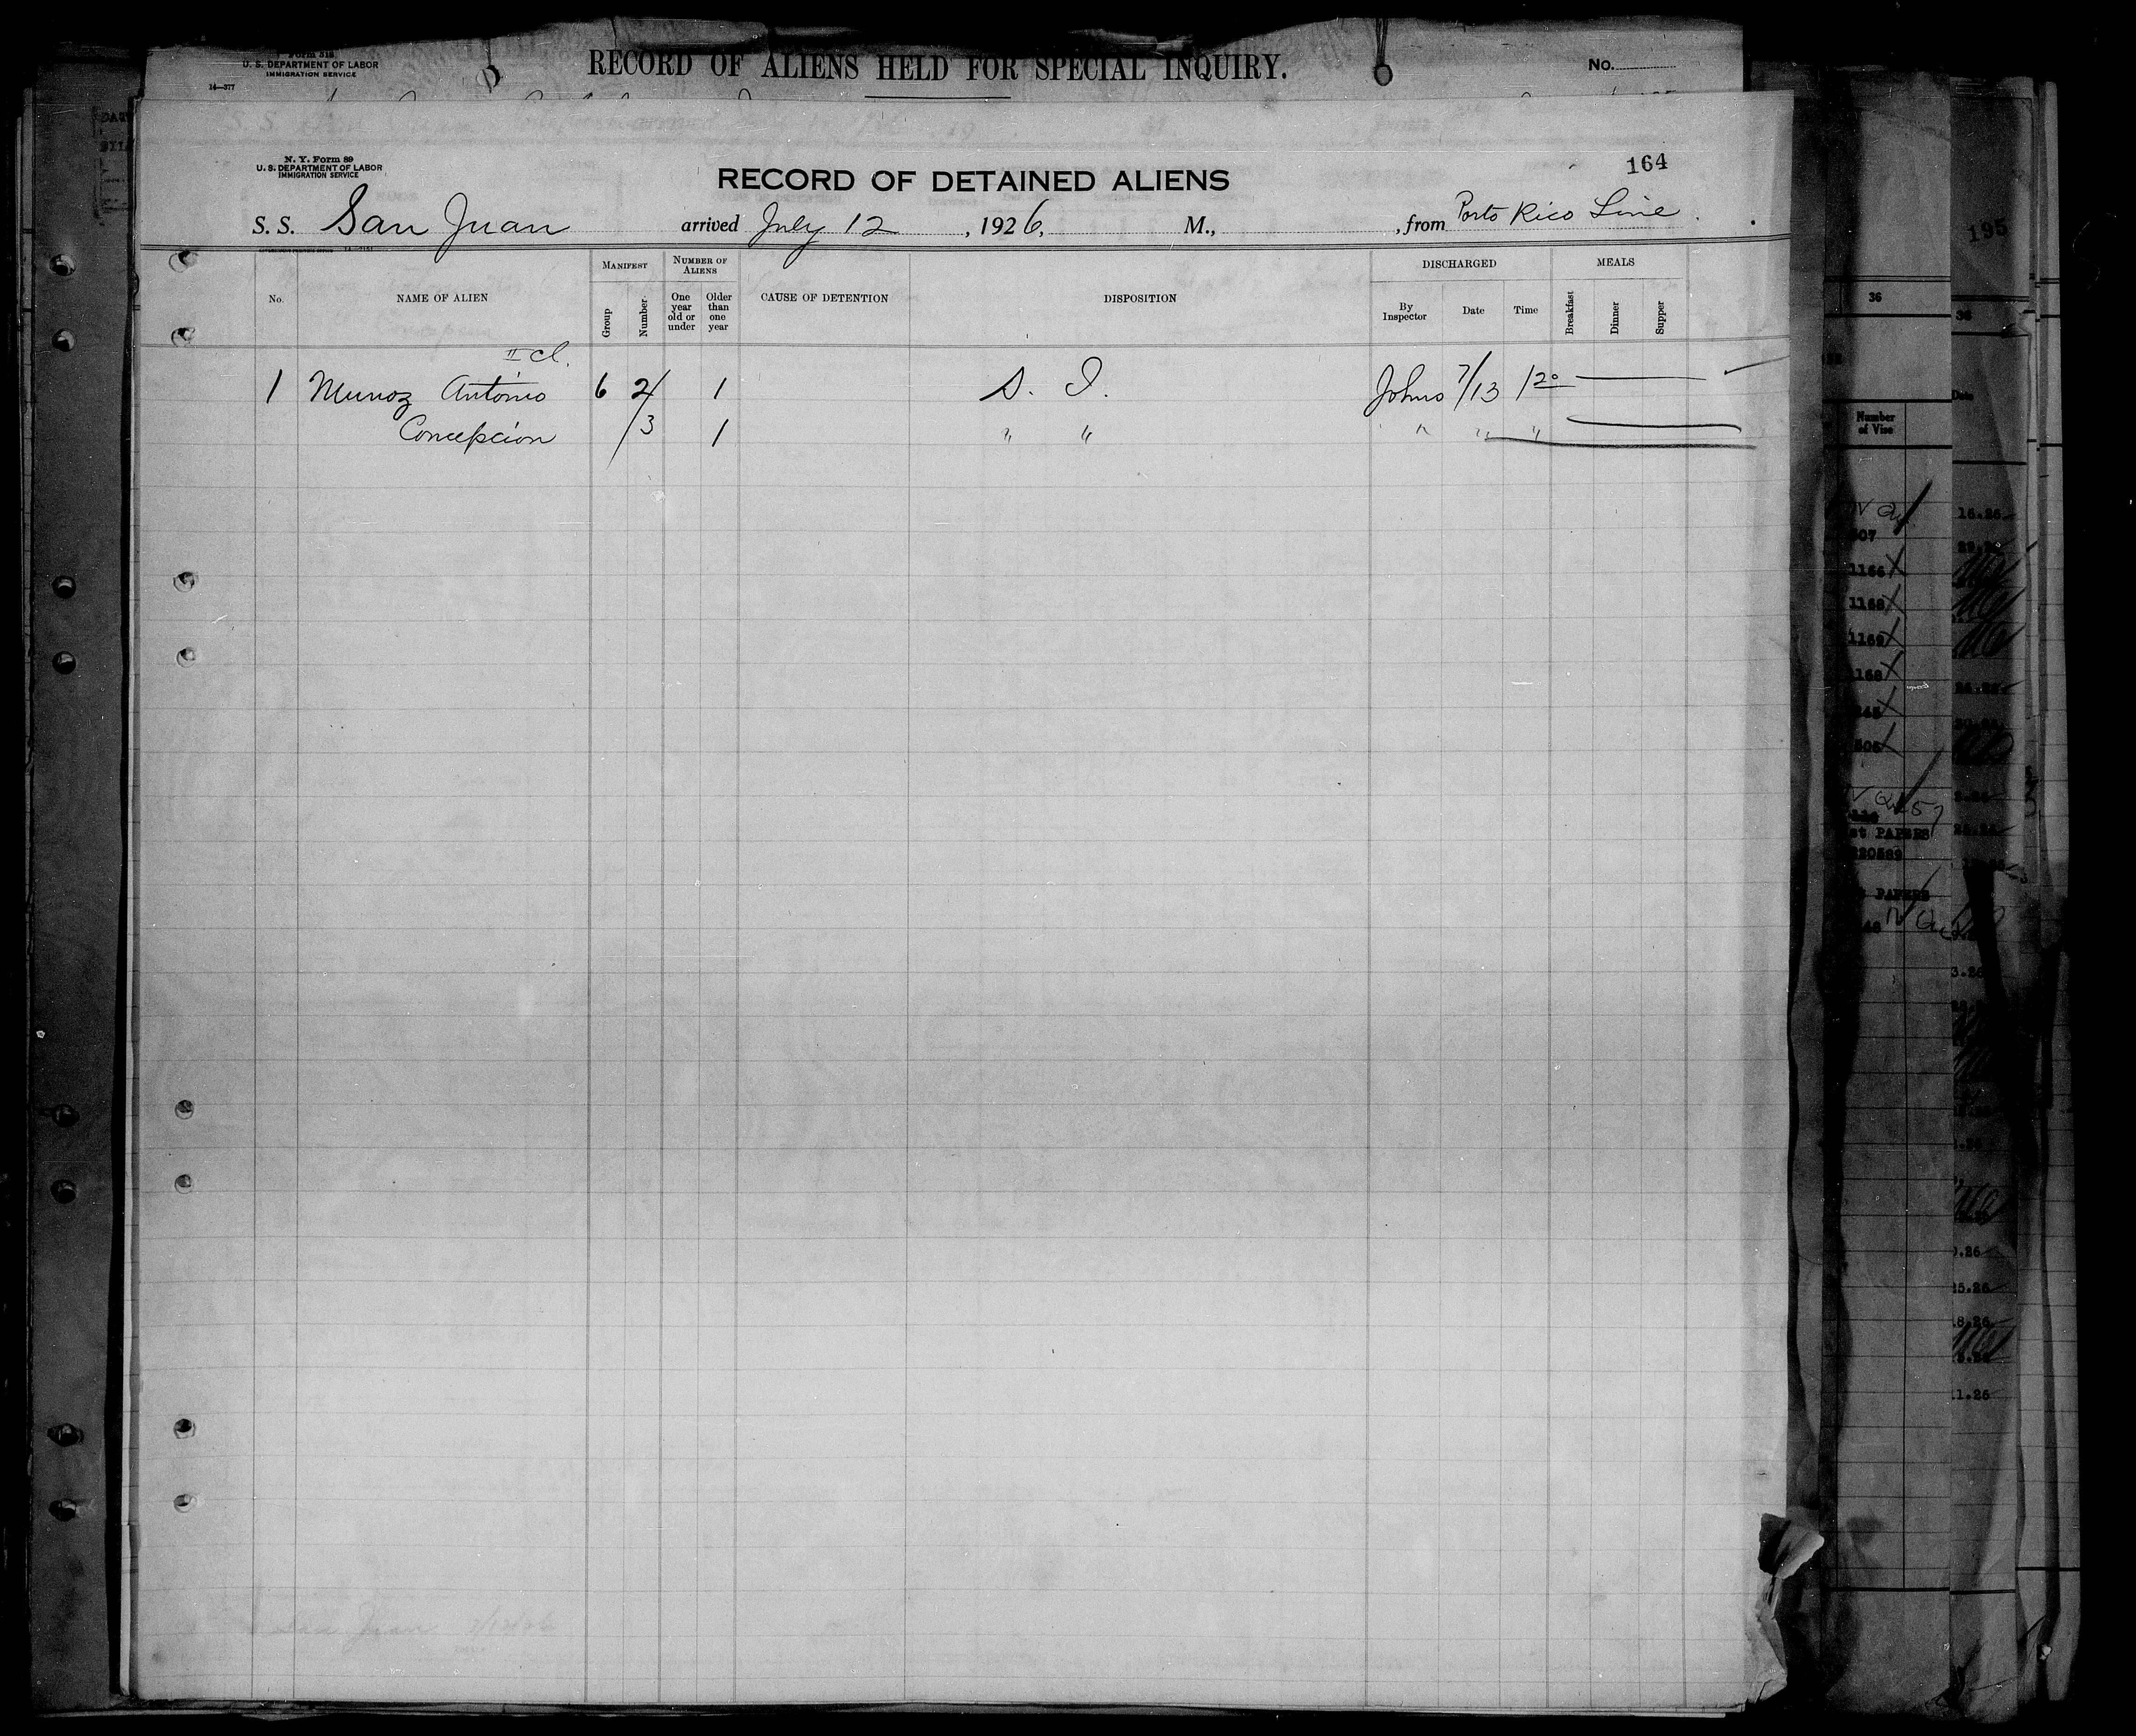 Form 316
U. S. DEPARTMENT OF LABOR
IMMIGRATION SERVICE
14—377
RECORD OF ALIENS HELD FOR SPECIAL INQUIRY.
No.
N. Y. Form 89
U. S. DEPARTMENT OF LABOR
IMMIGRATION SERVICE
RECORD OF DETAINED ALIENS
164
S. S. San Juan arrived July 12, 1926, M., , from Porto Rico Line.
No. NAME OF ALIEN MANIFEST Group Number NUMBER OF ALIENS One year old or under Older than one year CAUSE OF DETENTION DISPOSITION DISCHARGED By Inspector Date Time MEALS Breakfast Dinner Supper
II cl.
1 Munoz Antonio 6 2 1 S. I. Johns 7/13 1 20
Concepcion 3 1 " " " " "
195
36
36
Date
Number of Vise
16.26
507
1166
1168
1169
1168
st PAPERS
220589
PAPERS
3.26
25.26
18.26
11.26